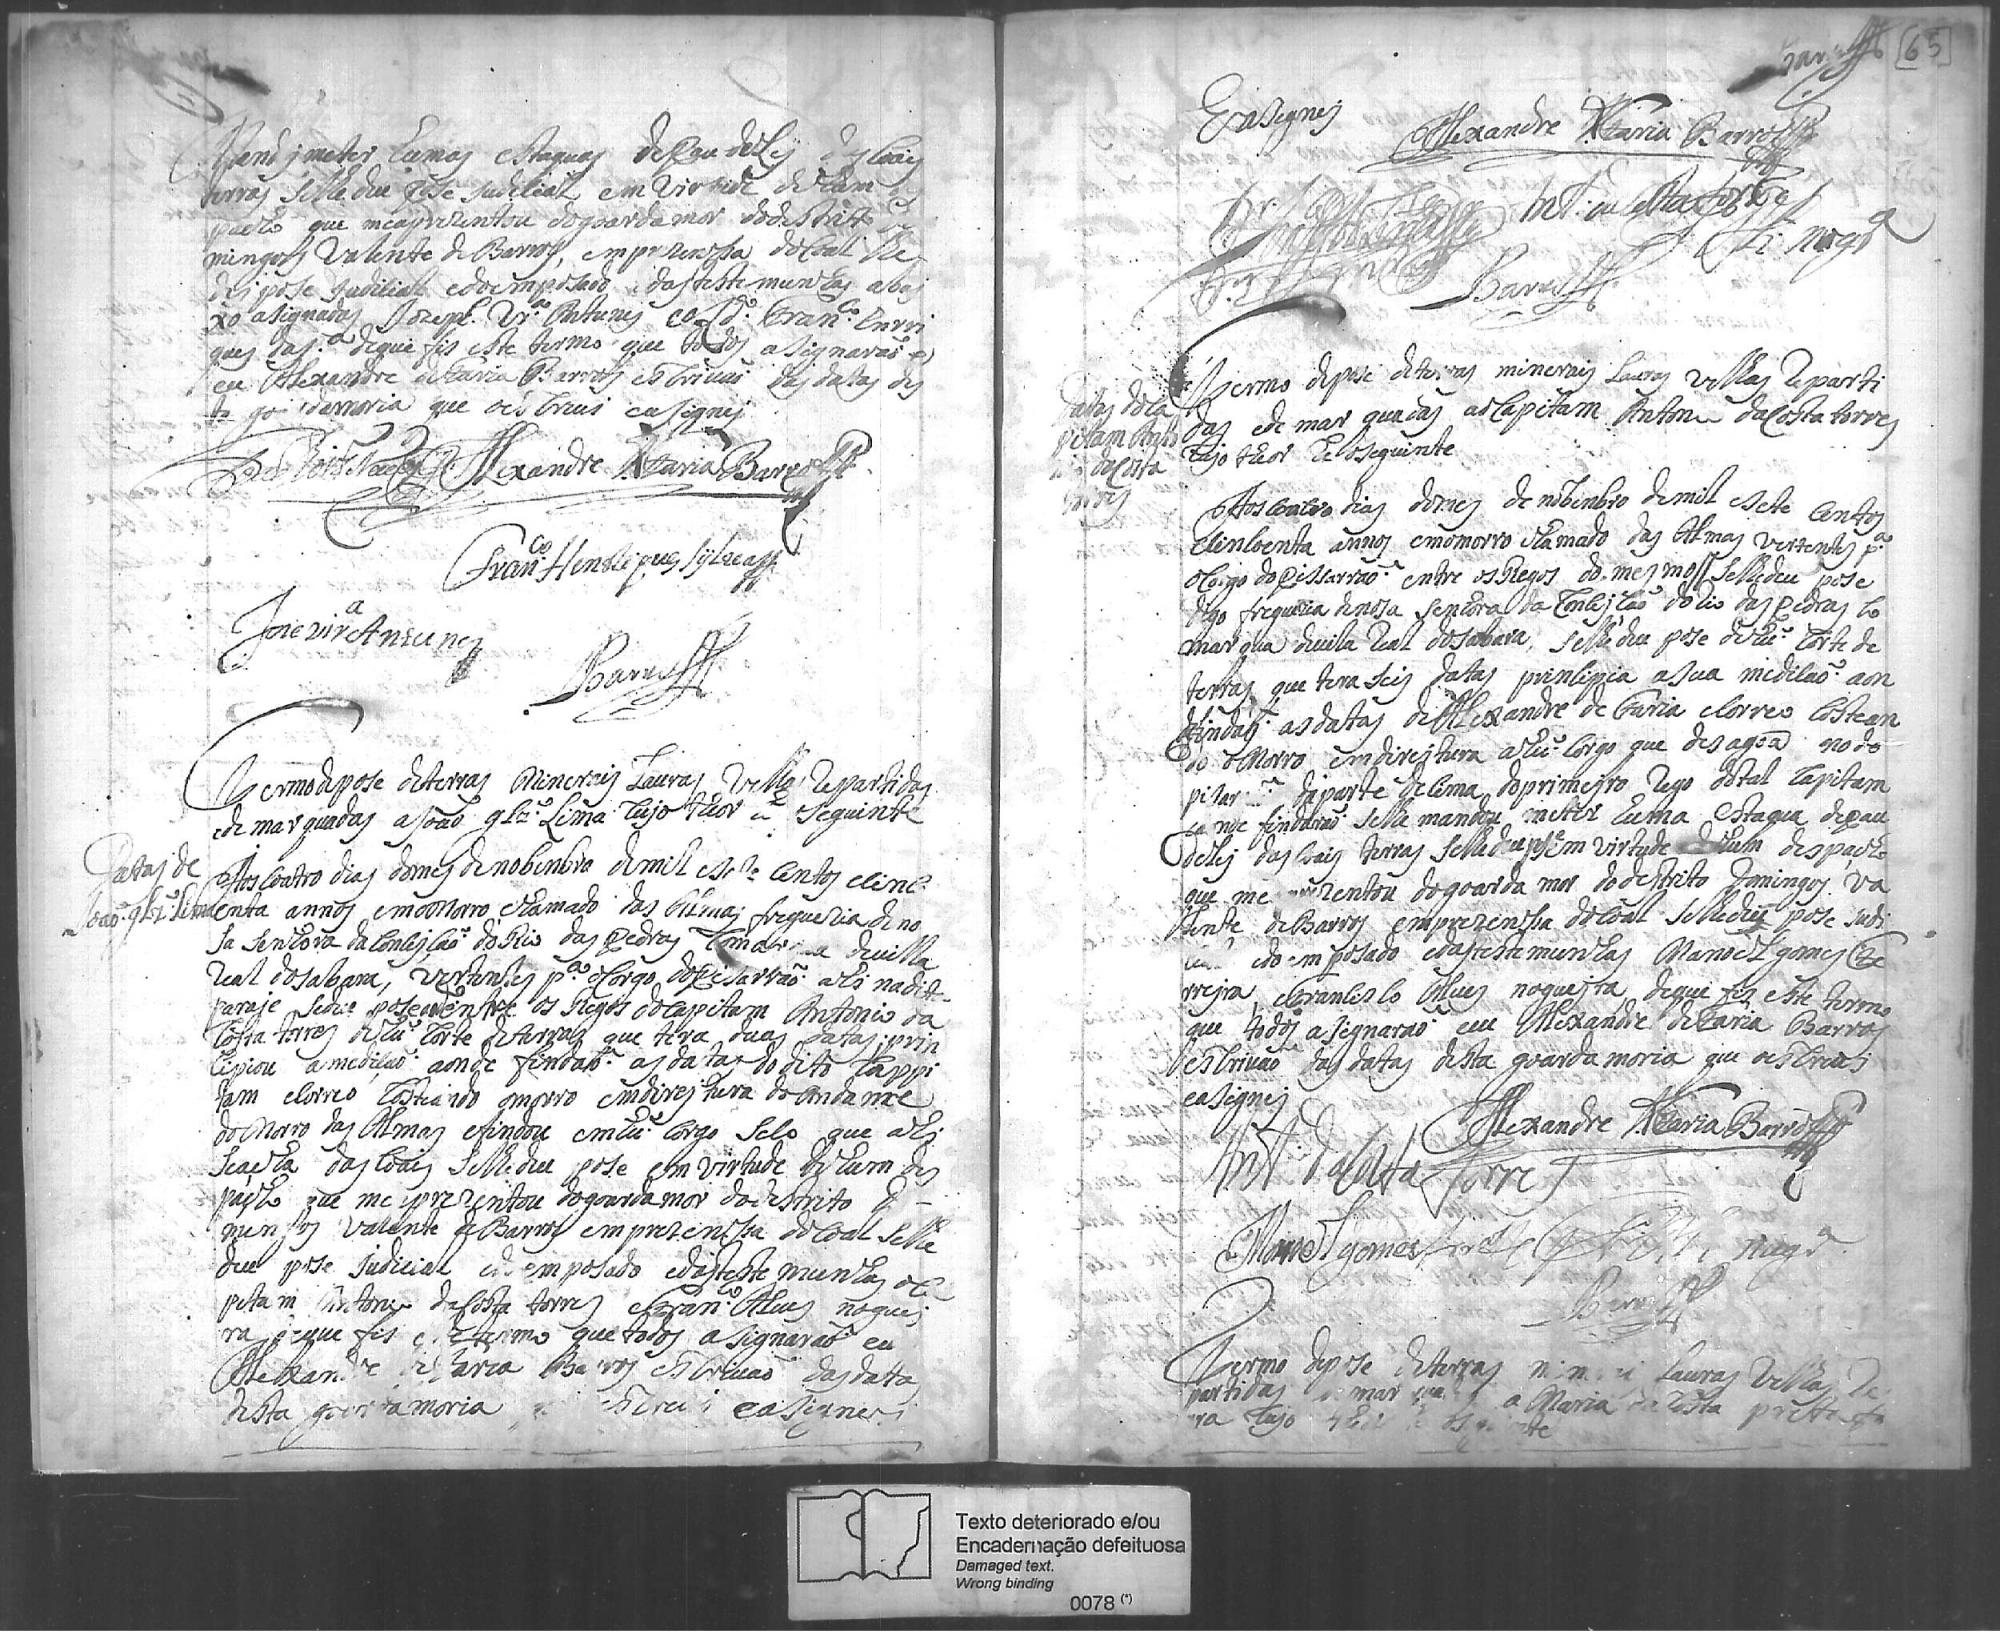 meter humas estaquas de Pau de Lej das coais
terras selhe deu pose Judicial em virtude de hum des
pacho que me aprezentou do goarda mor do destrito do
mingos Valente de Barros, em prezensa do coal lhe
dej pose Judicial e do emposado e das testemunhas abaj
xo asignadas Jozeph Vrª Antunes Franco Enrri
ques da sª de que fis este termo que todos asignaraõ e
eu Alexandre de faria Barros escrivaõ das datas des
ta goardamoria que o escrevi e asignej
Alexandre de Faria Barros
Franco Henriques Sylva
Joze Vrª Antunes
Barros
Termo de pose de terras Minerais Lauras Velhas Repartidas
e demarquadas a Joaõ glz Lima Cujo theor he o seguinte
Datas de
Joaõ glz Lima
Aos coatro dias do mes de nobenbro de mil e sete centos e sinc
oenta annos em o Morro chamado das Almas freguezia de no
sa senhora da Conseisaõ do Rio das Pedras Comarqua de villa
Real do sabara, vertentes pª o Corgo do Pisarraõ ahi na dita
paraje se deu pose dentre os Regos do Capitam Antonio da
Costa torres de hũ Corte de terras que tera duas datas prin
sipiou a mediçaõ aonde findaõ as datas do dito Cappi
tam e Correo Costeando o morro em direjtura do Andante
do Morro das Almas e findou em hũ Corgo Seco que ahi
se acha das coais selhe deu pose em virtude de hum des
pacho que me aprezentou do goarda mor do destrito Do
mingos Valente de Barros em prezensa do coal selhe
deu pose Judicial e do emposado e das testemunhas o Ca
pitam Antonio da Costa torres e Franco Alves noguej
ra de que fis este termo que todos asignaraõ eu
Alexandre de faria Barros escrivaõ das datas
desta goardamoria que o escrevi e asignei
Barros
65
E asignej
Alexandre de Faria Barros
Ant. da Costa Torres
Nogrª
Barros
Datas do Ca
pitam Anto
nio da Costa
torres
Termo de pose de terras minerais Lauras Velhas Reparti
das e demarquadas ao Capitam Antonio da Costa torres
Cujo theor he o seguinte
Aos coatro dias do mes de nobenbro de mil e sete centos
e sincoenta annos em o morro chamado das Almas vertentes pª
o Corgo do Pissarraõ entre os Regos do mesmo selhe deu pose
digo freguezia de nosa senhora da Conseisaõ do Rio das Pedras Co
marqua de vila Real do sabara, selhe deu pose de hũ Corte de
terras que tera seis datas prinsipia a sua medisaõ aon
de findaõ as datas de Alexandre de faria e Correo Costean
do o Morro em direjtura a hũ Corgo que desagoa no do
pisarraõ da parte de sima do primejro Rego do tal Capitam
aonde findaraõ selhe mandou meter huma estaqua de pau
de lej das coais terras selhe deu pose em virtude de hum despacho
que me aprezentou do goarda mor do destrito Domingos Va
lente de Barros em prezensa do coal selhe deu pose Judi
cial e do emposado e das testemunhas Manoel gomes fe
rrejra, e Francisco Alves noguejra de que fis este termo
que todos asignaraõ e eu Alexandre de faria Barros
escrivaõ das datas desta goardamoria que o escrevi
e asignej
Alexandre de Faria Barros
Ant. da Costa Torres
Manoel gomes Nogrª
Barros
Termo de pose de terras minerais Lauras Velhas Re
partidas e demarquadas a Maria da Costa preta fo
rra Cujo theor he o seguinte
Texto deteriorado e/ou
Encadernação defeituosa
Damaged text.
Wrong binding
0078 (*)